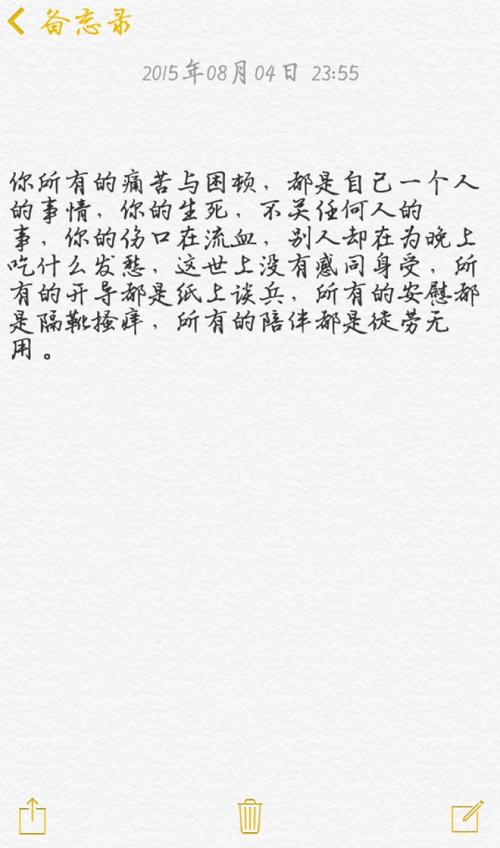 备忘录
2015年08月04日 23:55
你所有的痛苦与困顿，都是自己一个人
的事情，你的生死，不关任何人的
事，你的伤口在流血，别人却在为晚上
吃什么发愁，这世上没有感同身受，所
有的开导都是纸上谈兵，所有的安慰都
是隔靴搔痒，所有的陪伴都是徒劳无
用。